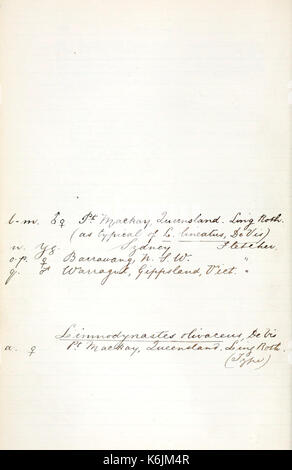 b-m. ♀ Pt. Mackay, Queensland. Ling Roth.
(as typical of L. lineatus, De Vis)
n. Yg. Sydney Fletcher.
o.p. ♀ Barrawang, N.S.W. "
q. Warragul, Gippsland, Vict. "
Limnodynastes olivaceus, De Vis
a. ♀ Pt. Mackay, Queensland. Ling Roth.
(Type)
alamy
Image ID: K6JM4R
www.alamy.com